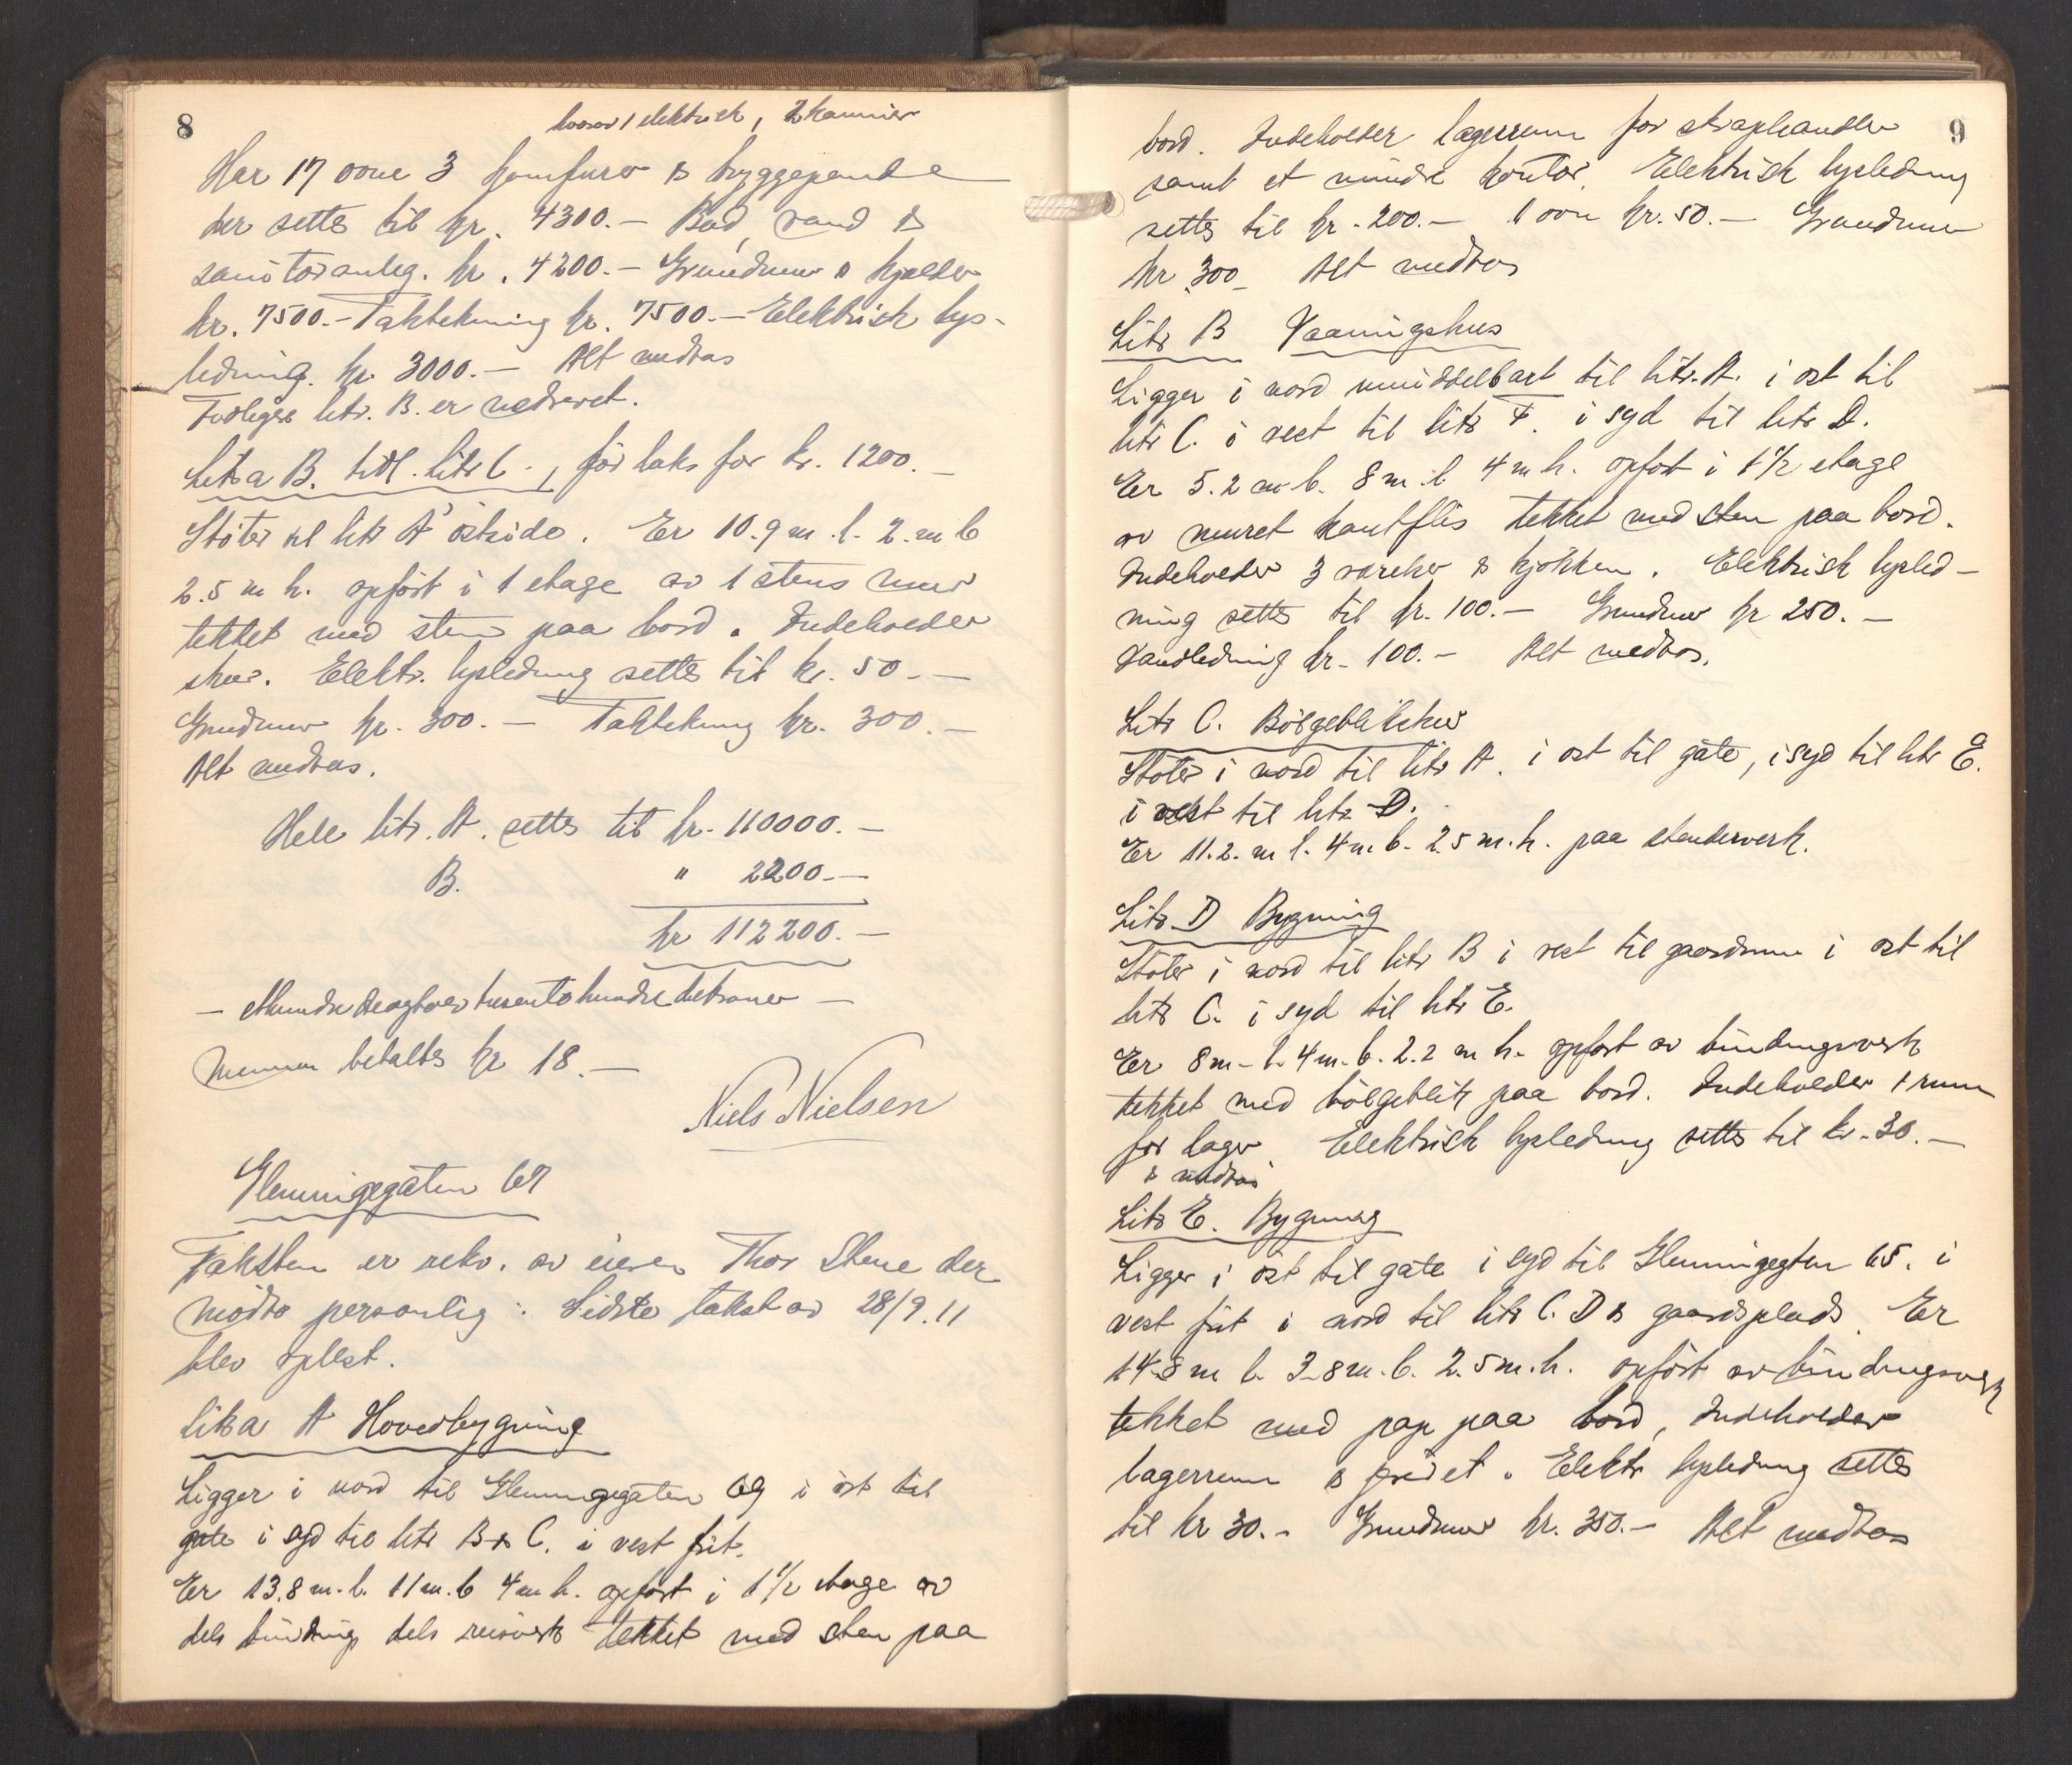 8
hvorav 1 elektrisk, 2 kaminer
Har 17 ovne 3 komfurer & bryggepande
der settes til kr. 4300.- Bad, vand &
sanitæranleg. kr. 4200.- Grundmur & kjelder
kr. 7500.- Taktekning kr. 7500.- Elektrisk lys-
ledning. kr. 3000.- Alt medtas
Tidligere litr. B. er nedrevet.
Litra B. tidl. litr C., før taks for kr. 1200.-
Støter til litr A' østside. Er 10.9 m. l. 2. m b
2.5 m h. opført i 1 etage av 1 stens mur
tekket med sten paa bord. Indeholder
skur. Elektr. lysledning settes til kr. 50.-
Grundmur kr. 300.- Taktekning kr. 300.-
Alt medtas.
Hele litr. A. settes til kr. 110000.-
B. " 2200.-
kr 112200.-
- Ethundre og tolv tusen to hundre kroner -
kr 18.-
Niels Nielsen
Glemmingegaten 67
Taksten er rekv. av eieren Thor Stene der
møtte personlig. Sidste takst av 28/9.11
blev oplest.
Litra A Hovedbygning
Ligger i nord til Glemmingegaten 69 i øst til
gate i syd til litr B & C. i vest frit.
Er 13.8 m. l. 11 m. b 4 m h. opført i 1 1/2 etage av
dels binding dels reisverk tekket med sten paa
9
bord. Indeholder lagerrum for skraphandler
samt et mindre kontor. Elektrisk lysledning
settes til kr. 200.- 1 ovn kr. 50.- Grundmur
kr 300.- Alt medtas
Litr B Vaaningshus
Ligger i nord umiddelbart til litr. A. i øst til
litr C. i vest til litr F. i syd til litr D.
Er 5.2 m b. 8 m. l 4 m h. opført i 1 1/2 etage
av muret kantflis tekket med sten paa bord.
Indeholder 3 værelser & kjøkken. Elektrisk lysled-
ning settes til kr. 100.- Grundmur kr 250.-
Vandledning kr. 100.- Alt medtas.
Litr C. Bølgeblikskur
Støter i nord til litr A. i øst til gate, i syd til litr E.
i vest til litr D.
Er 11.2. m l. 4 m b. 2.5 m. h. paa stenderverk.
Litr D Bygning
Støter i nord til litr B i vest til gaardsrum i øst til
litr C. i syd til litr E.
Er 8 m- l. 4 m. b. 2.2 m h. opført av bindingsverk
tekket med bølgeblik paa bord. Indeholder 1 rum
for lager. Elektrisk lysledning settes til kr. 30.-
& medtas
Litr E. Bygning
Ligger i øst til gate i syd til Glemmingegten 65. i
vest frit i nord til litr C. D & gaardsplads. Er
14.8 m l. 3.8 m. b. 2.5 m. h. opført av bindingsverk
tekket med pap paa bord, Indeholder
lagerrum & privet. Elektr lysledning settes
til kr 30.- Grundmur kr. 350.- Alt medtas